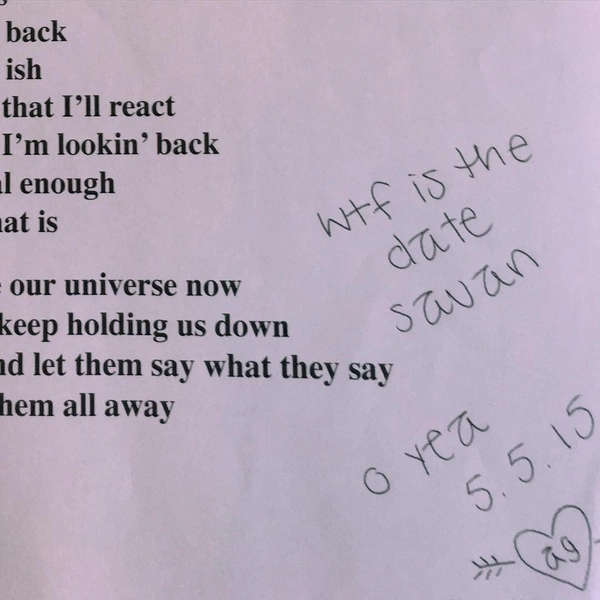 back
ish
that I'll react
I'm lookin' back
enough
is
our universe now
keep holding us down
let them say what they say
all away
wtf is the
date
savan
o yea
5.5.15
ag